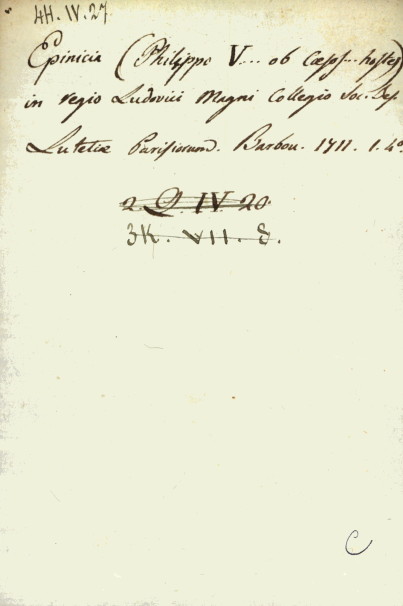 4H.IV.27
Epinicia (Philippo V... ob Cæsos... hostes)
in regio Ludovici Magni Collegio Soc. Jes.
Lutetiæ Parisiorum. Barbou. 1711. 1. 4º
2. Q. IV. 20.
3K. VII. 8.
C